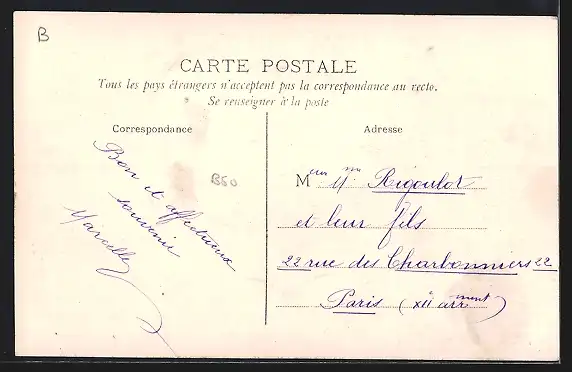 B
CARTE POSTALE
Tous les pays étrangers n'acceptent pas la correspondance au recto.
Se renseigner à la poste
Correspondance
Adresse
Bon et affectueux
souvenir
Marcelle
B50
M eur Mme Rigoulot
et leur fils
22 rue des Charbonniers 22
Paris (XII arrment)